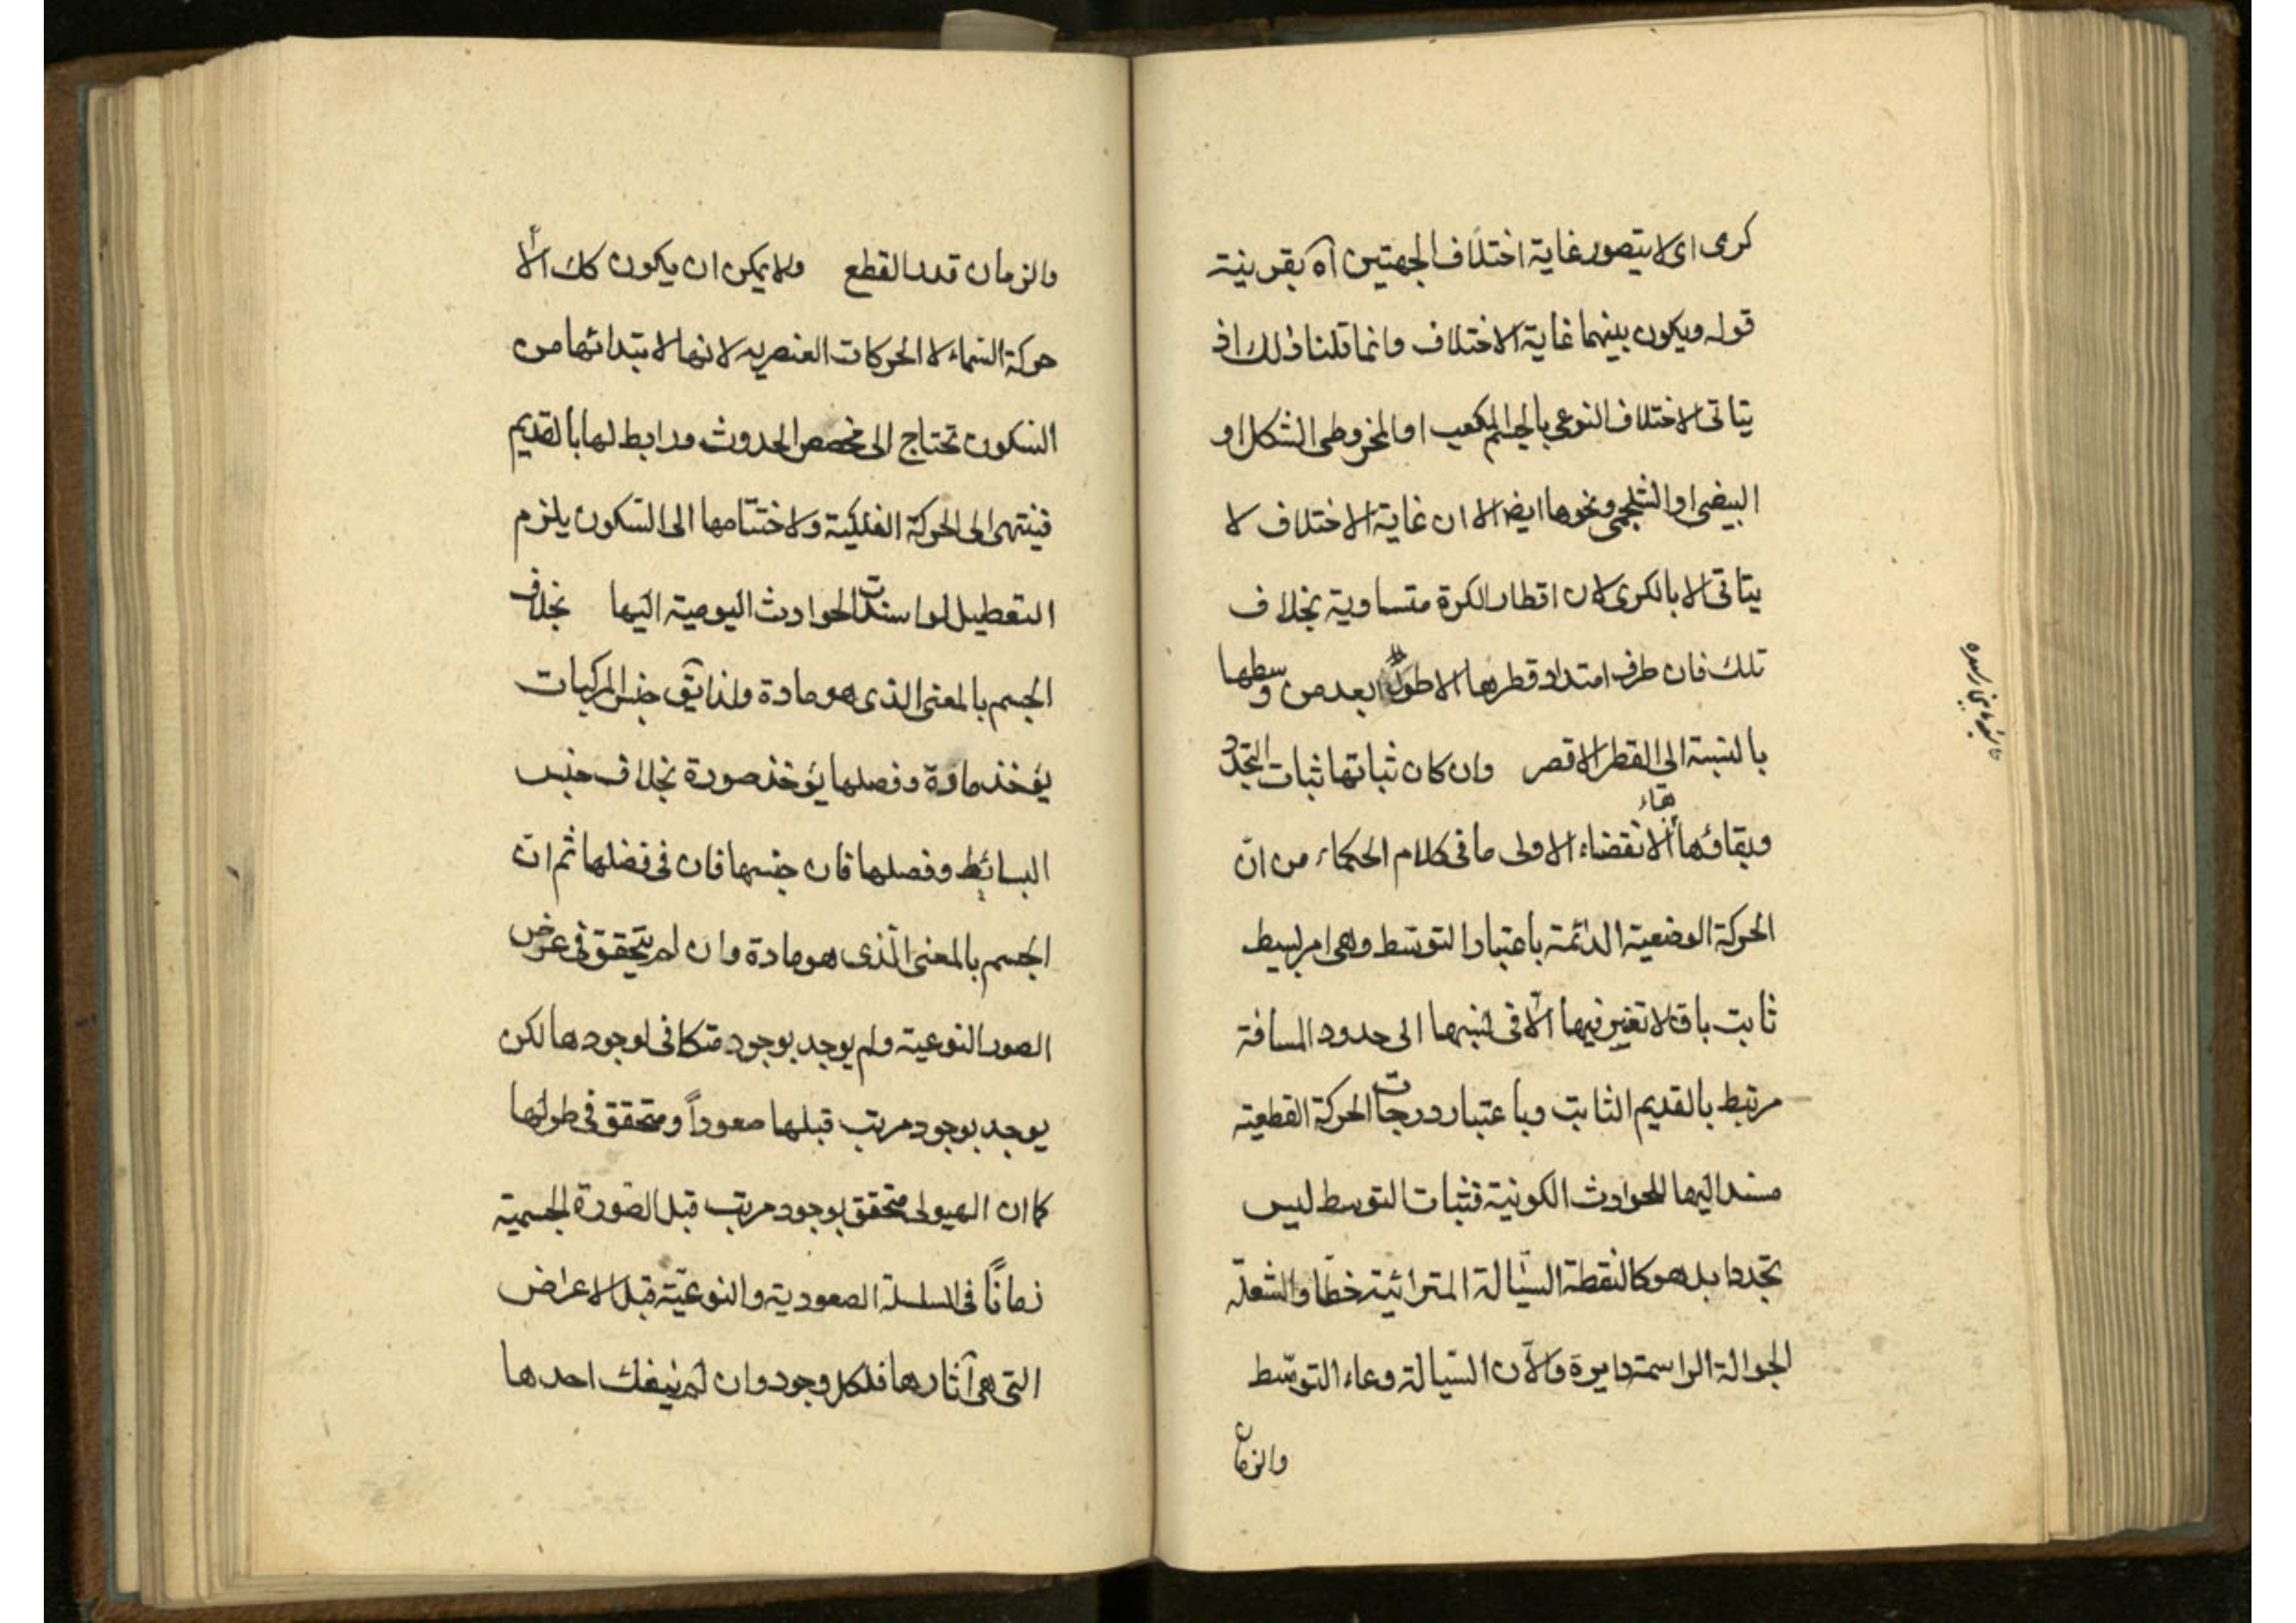 كرى اى لا يتصور غاية اختلاف الجهتين آه بقرينة
قوله ويكون بينهما غاية الاختلاف وانما قلنا ذلك اذ
يتاتى الاختلاف النوعى بالجسم المكعب او المخروطى الشكل او
البيضى او الشلجمى ونحوها ايضا الا ان غاية الاختلاف لا
يتاتى الا بالكرى لان اقطار الكرة متساوية بخلاف
تلك فان طرف امتداد قطرها الاطول ابعد من وسطها
بالنسبة الى القطر الاقصر وان كان ثباتها ثبات التجدد
وبقاؤها بقاء الانقضاء الاولى ما فى كلام الحكماء من انّ
الحركة الوضعية الدائمة باعتبار التوسّط وهى امر بسيط
ثابت باق لا تغير فيها الّا فى نسبها الى حدود المسافة
مرتبط بالقديم الثابت وباعتبار درجات الحركة القطعية
مسند اليها للحوادث الكونية فثبات التوسط ليس
تجددا بل هو كالنقطة السيّالة المترائية خطّا والشعلة
الجوالة الراسمة دايرة والآن السّيالة وعاء التوسّط
والزمان
والزمان قدر القطع ولا يمكن ان يكون كك الّا
حركة السّماء لا الحركات العنصريه لانها لابتدائها من
السّكون تحتاج الى مخصص الحدوث ورابط لها بالقديم
فينتهى الى الحركة الفلكية ولاختتامها الى السّكون يلزم
التعطيل لو استندت الحوادث اليومية اليها بخلاف
الجسم بالمعنى الذى هو مادة ولذا يق جنس المركبات
يؤخذ مادة وفصلها يؤخذ صورة بخلاف جنس
البسائط وفصلها فان جنسها فان فى فصلها ثم انّ
الجسم بالمعنى الّذى هو مادة وان لم يتحقق فى عرض
الصور النوعية ولم يوجد بوجود متكافى لوجودها لكن
يوجد بوجود مرتب قبلها صعوداً ومتحقق فى طولها
كما ان الهيولى متحقق بوجود مرتب قبل الصّورة الجسمية
زماناً فى السلسلة الصعودية والنوعيّة قبل الاعراض
التى هى آثارها فلكل وجود وان لم ينفك احدها